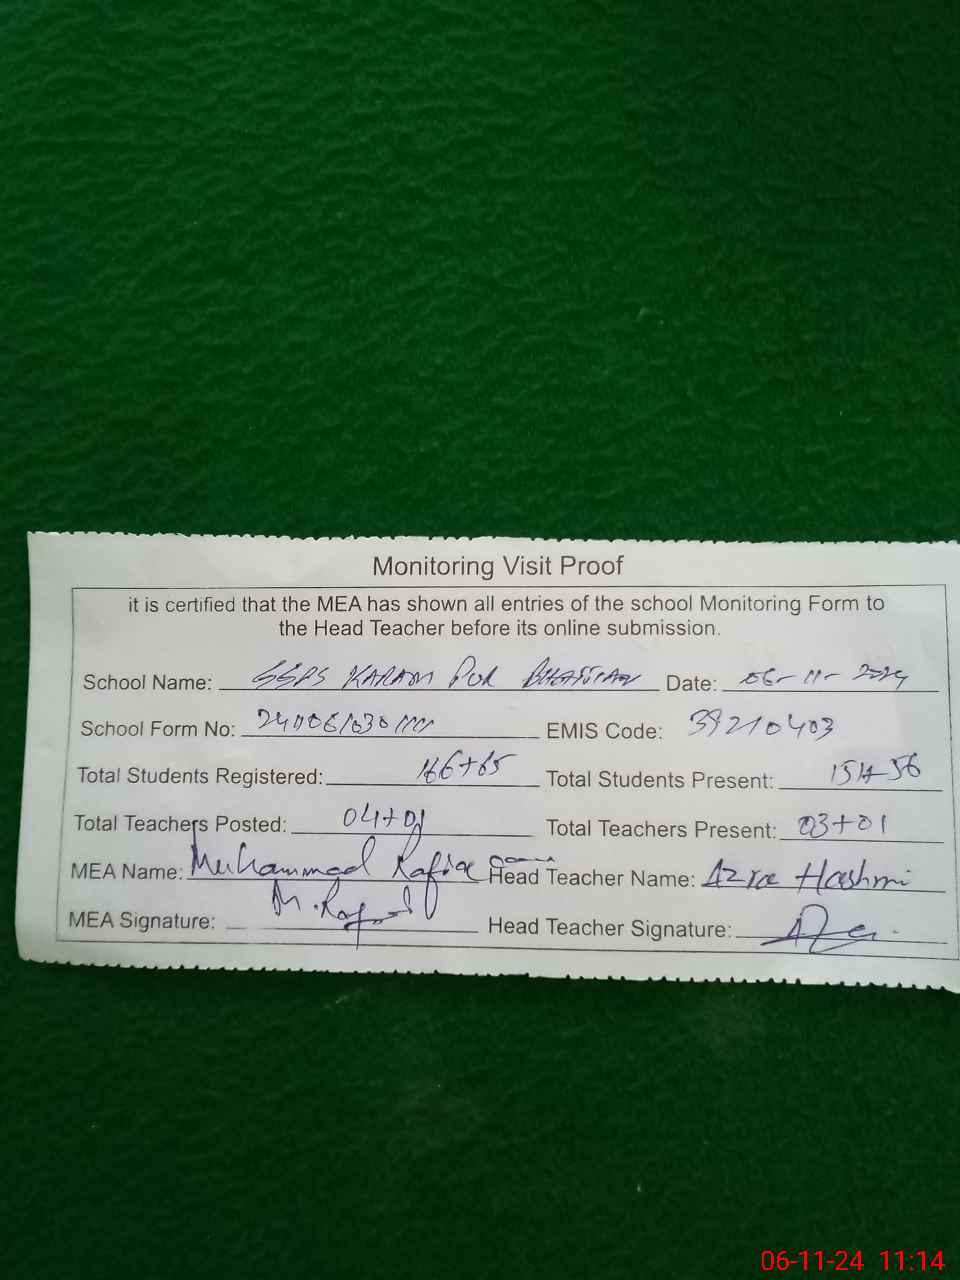 Monitoring Visit Proof
it is certified that the MEA has shown all entries of the school Monitoring Form to
the Head Teacher before its online submission.
School Name: KARAM PUR Date: 06-11-2024
School Form No: EMIS Code: 39210403
Total Students Registered: 166+65 Total Students Present:
Total Teachers Posted: 04+01 Total Teachers Present: 03+01
MEA Name: Muhammad Head Teacher Name: Azra Hashmi
MEA Signature: Head Teacher Signature:
06-11-24 11:14